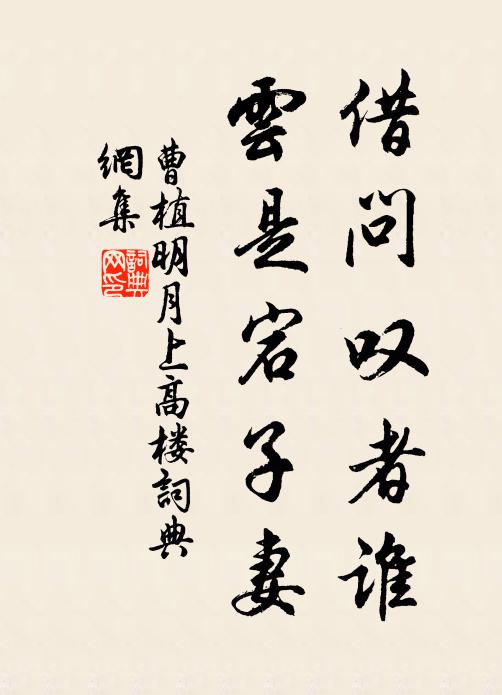 借問叹者誰
雲是宕子妻
曹植明月上高楼詞典
網集
詞典
网印